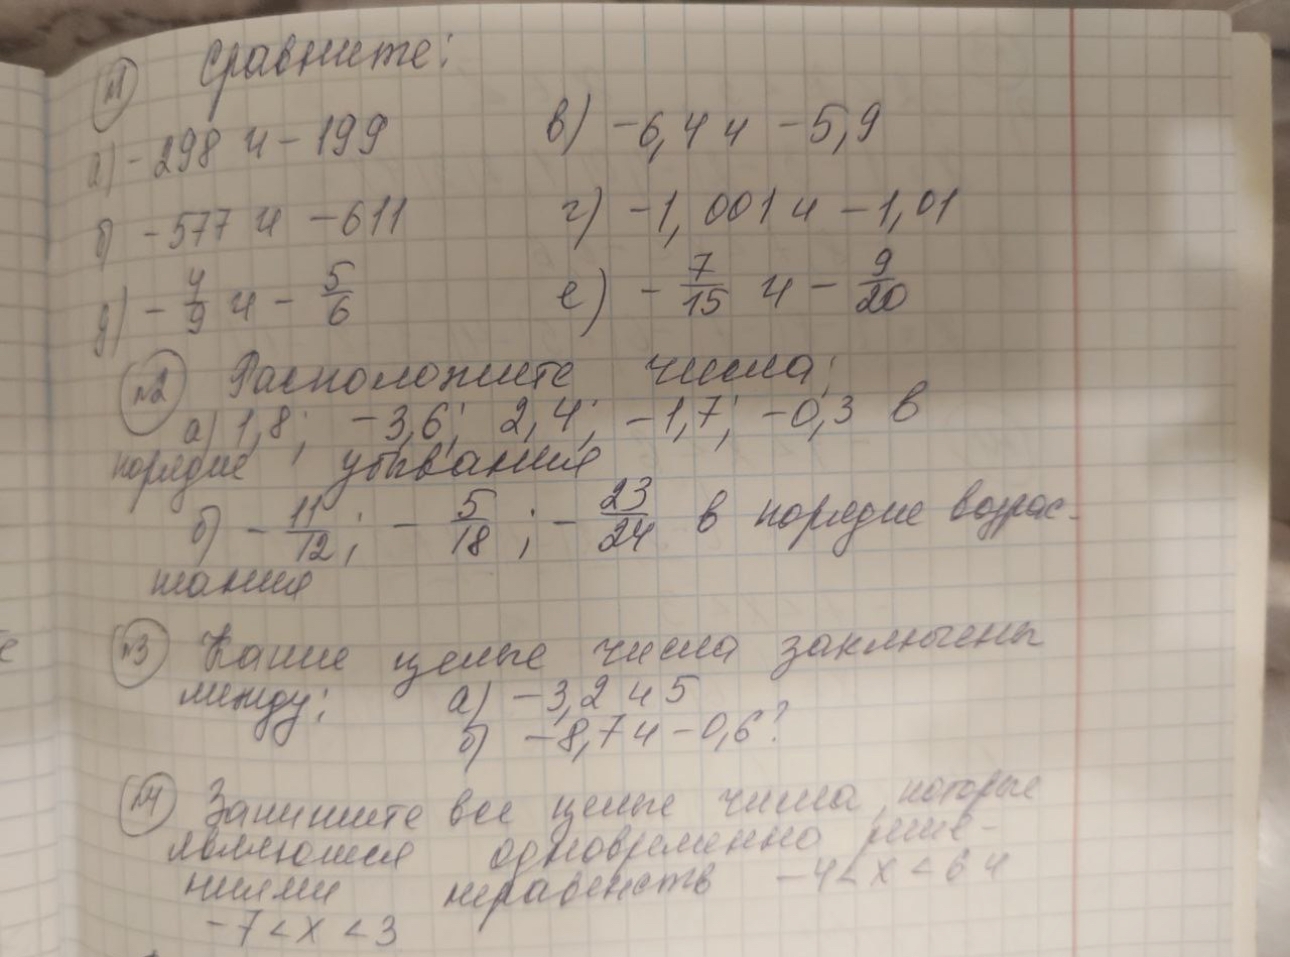 №1 Сравните:
а) -298 и -199 в) -6,4 и -5,9
б) -577 и -611 г) -1,001 и -1,01
д) -4/9 и -5/6 е) -7/15 и -9/20
№2 Расположите числа:
а) 1,8; -3,6; 2,4; -1,7; -0,3 в
порядке убывания
б) -11/12; -5/18; -23/24 в порядке возрас-
тания
№3 Какие целые числа заключены
между: а) -3,2 и 5
б) -8,7 и -0,6?
№4 Запишите все целые числа, которые
являются одновременно реше-
ниями неравенств -4<x<6 и
-7<x<3